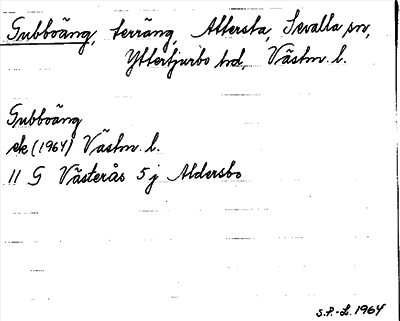 Gubboäng, terräng, Altersta, Sevalla sn,
Yttertjurbo hd, Västm. l.
Gubboäng
ek (1964) Västm. l.
11 G Västerås 5 j Aldersbo
S.P.-L. 1964